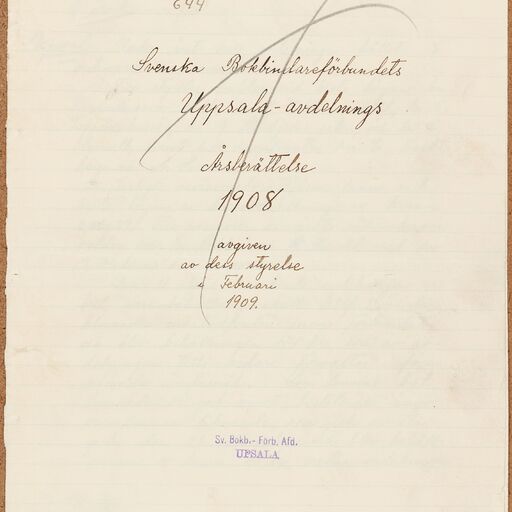 644
Svenska Bokbindareförbundets
Uppsala-avdelnings
Årsberättelse
1908
avgiven
av dess styrelse
i Februari
1909.
Sv. Bokb.- Förb. Afd.
UPSALA